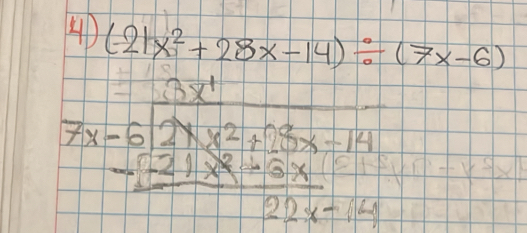 4) (-21x² + 28x - 14) ÷ (7x - 6)
3x¹
7x - 6 | 21x² + 28x - 14
- 21x² - 6x
22x - 14